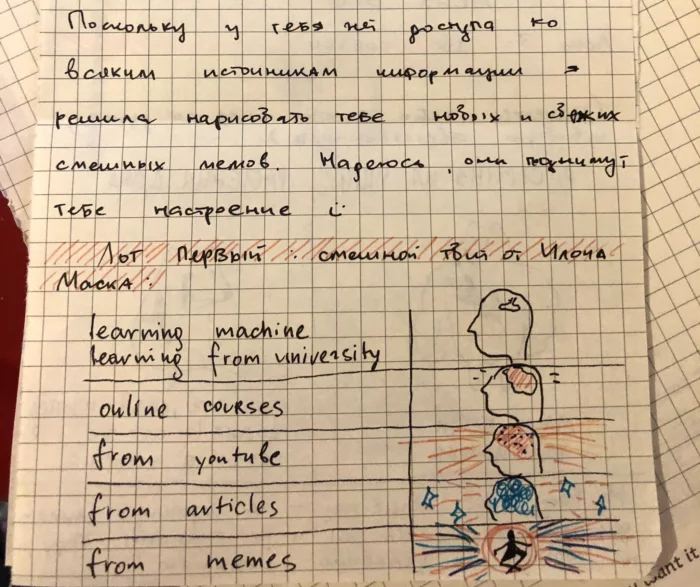 Поскольку у тебя нет доступа ко
всяким источникам информации я
решила нарисовать тебе новых и свежих
смешных мемов. Надеюсь, они поднимут
тебе настроение :)
Лот первый: смешной твит от Илона
Маска:
learning machine
learning from university
online courses
from youtube
from articles
from memes
want it